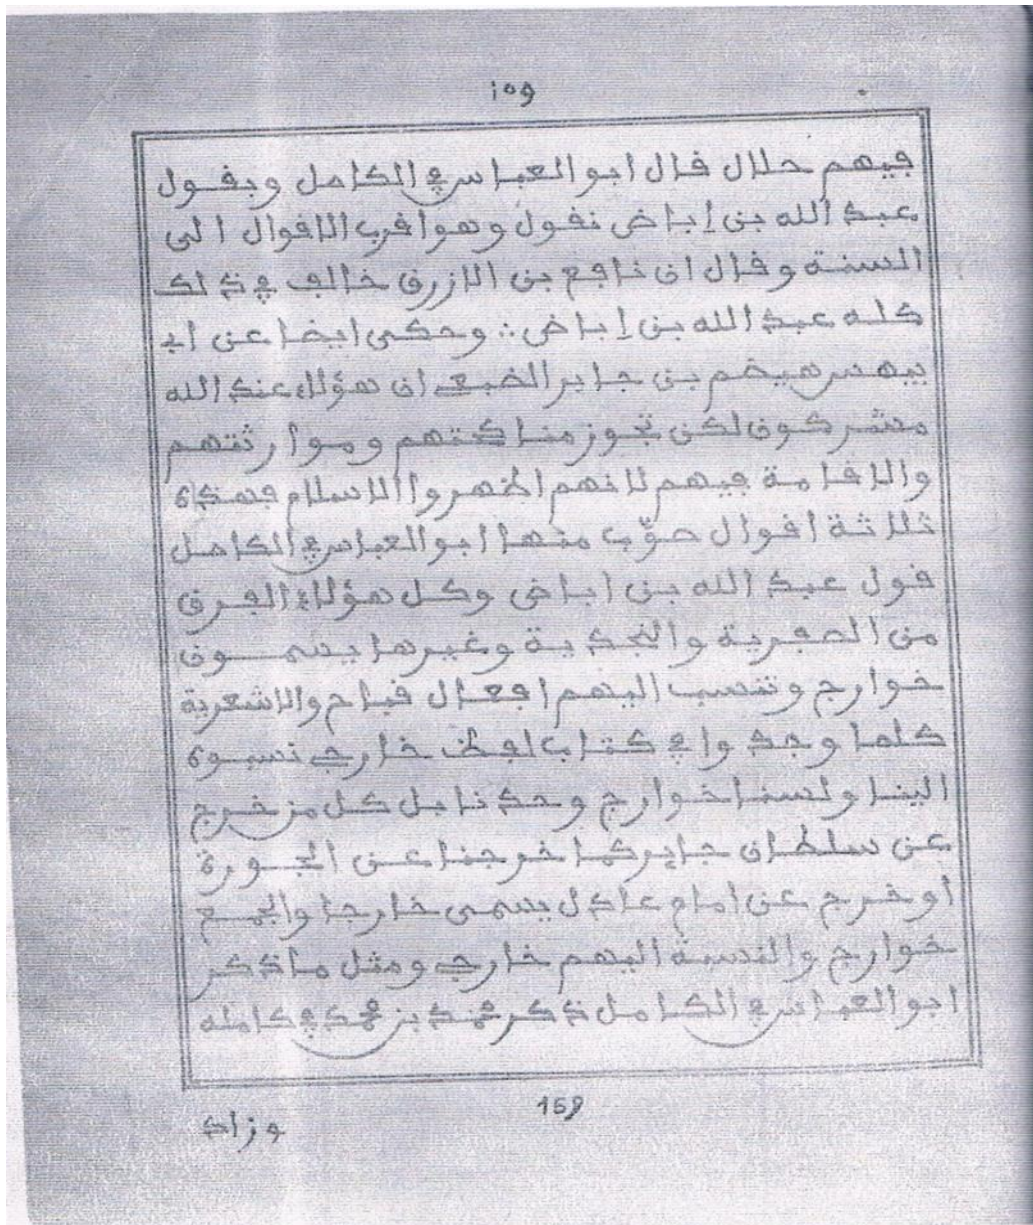 ١٥٩
فيهم حلال قال ابو العباس في الكامل وبقول
عبد الله بن إباض نقول وهو اقرب الاقوال الى
السنة وقال ان نافع بن الازرق خالف في ذلك
كله عبد الله بن إباض ∴ وحكى ايضا عن ابي
بيهس هيضم بن جابر الضبعي ان هؤلاء عند الله
مشركون لكن تجوز مناكحتهم وموارثتهم
والاقامة فيهم لانهم اظهروا الاسلام فهذه
ثلاثة اقوال صوّب منها ابو العباس في الكامل
قول عبد الله بن اباض وكل هؤلاء الفرق
من الصفرية والنجدية وغيرها يسمون
خوارج وتنسب اليهم افعال قباح والاشعرية
كلما وجدوا في كتاب لفظ خارجي نسبوه
الينا ولسنا خوارج وحدنا بل كل من خرج
عن سلطان جاير كما خرجنا عن الجورة
او خرج عن امام عادل يسمى خارجا والجمع
خوارج والنسبة اليهم خارجي ومثل ما ذكر
ابو العباس في الكامل ذكر محمد بن محمد في كامله
159
وزاد